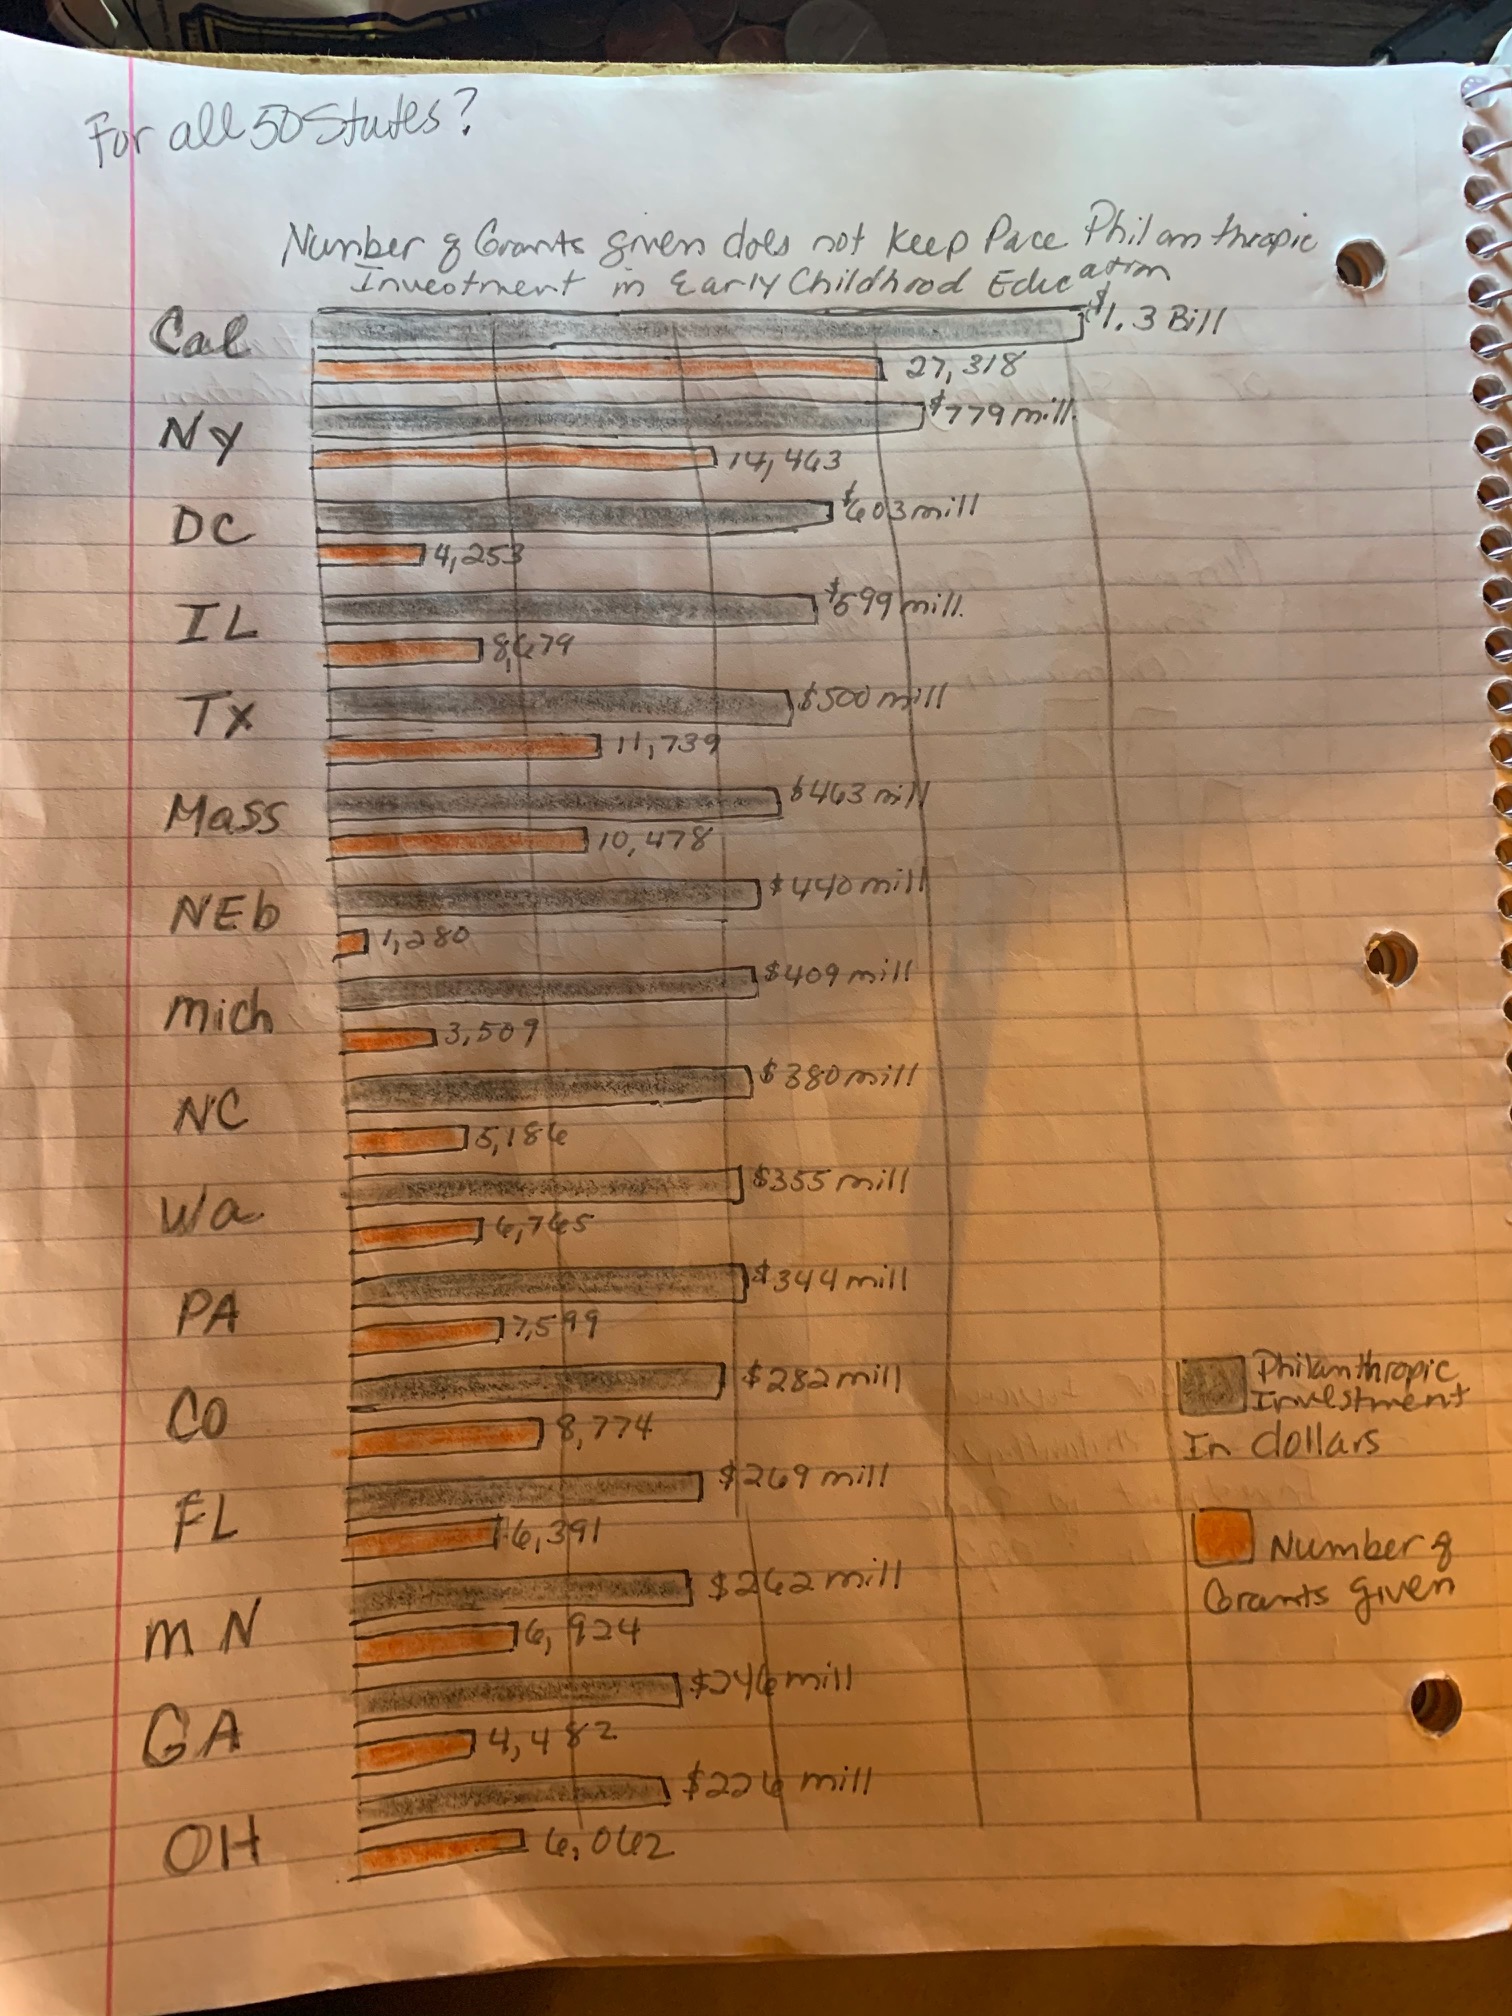 For all 50 States?
Number of Grants given does not keep Pace Philanthropic
Investment in Early Childhood Education
Cal
$1.3 Bill
27,318
NY
$779 mill.
14,463
DC
$603 mill
4,253
IL
$599 mill.
8,679
Tx
$500 mill
11,739
Mass
$463 mill
10,478
NEb
$440 mill
1,280
Mich
$409 mill
3,509
NC
$380 mill
5,186
Wa
$355 mill
6,765
PA
$344 mill
7,599
CO
$282 mill
8,774
FL
$269 mill
6,391
MN
$262 mill
6,924
GA
$246 mill
4,482
OH
$226 mill
6,062
Philanthropic
Investment
In dollars
Number of
Grants given